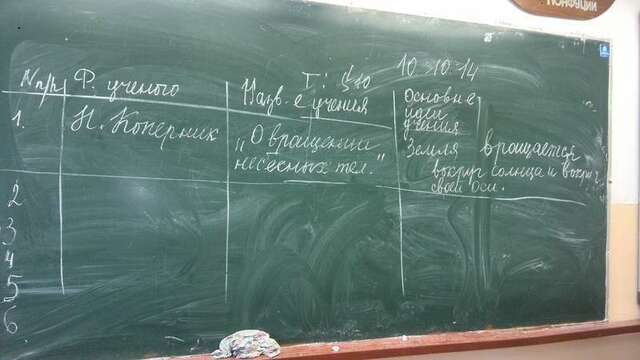 КОНФУЦИЙ
Т: § 10 10 10 14
N п/п Ф. ученого Назв-е учения Основные идеи учения
1. Н. Коперник „О вращении небесных тел." Земля вращается вокруг солнца и вокруг своей оси.
2
3
4
5
6.